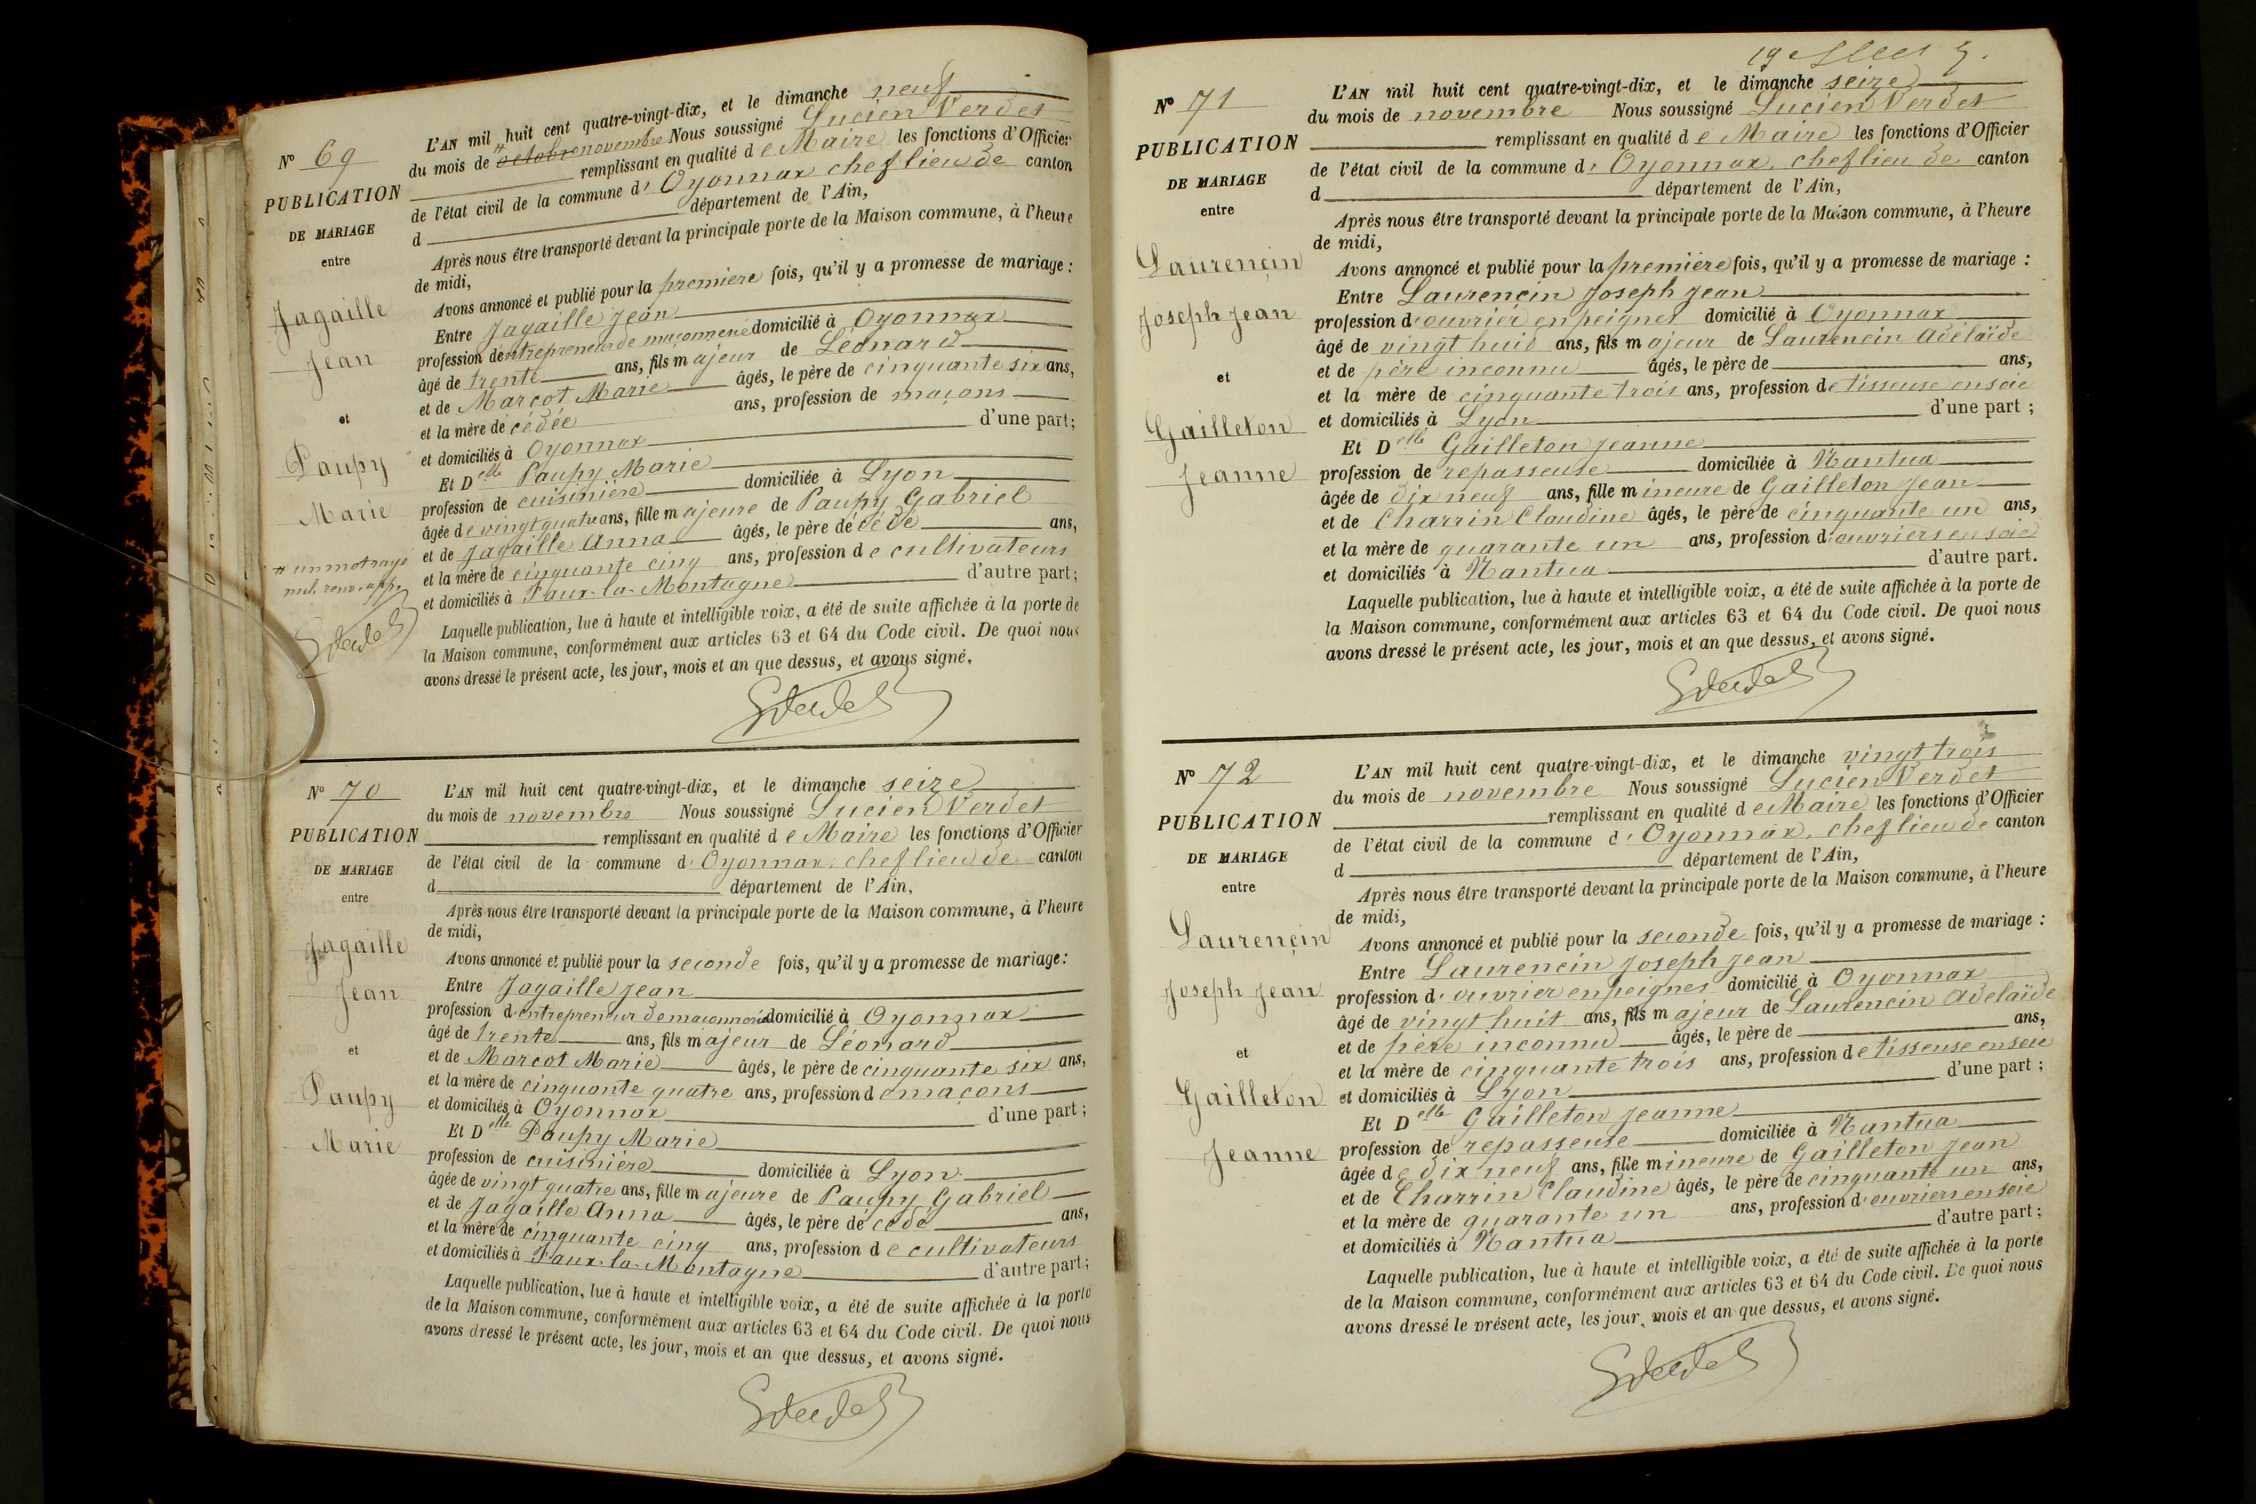 N° 69
PUBLICATION
DE MARIAGE
entre
Jagaille
Jean
et
Paupy
Marie
# un mot rayé
nul. renv. app.
L'AN mil huit cent quatre-vingt-dix, et le dimanche neuf
du mois de # octobre novembre Nous soussigné Lucien Verdet
remplissant en qualité de Maire les fonctions d'Officier
de l'état civil de la commune d' Oyonnax chef lieu de canton
d département de l'Ain,
Après nous être transporté devant la principale porte de la Maison commune, à l'heure
de midi,
Avons annoncé et publié pour la première fois, qu'il y a promesse de mariage :
Entre Jagaille Jean
profession d'entrepreneur de maçonnerie domicilié à Oyonnax
âgé de trente ans, fils majeur de Léonard
et de Marcot Marie âgés, le père de cinquante six ans,
et la mère de cédée ans, profession de maçons
et domiciliés à Oyonnax d'une part ;
Et Delle Paupy Marie
profession de cuisinière domiciliée à Lyon
âgée de vingt quatre ans, fille majeure de Paupy Gabriel
et de Jagaille Anna âgés, le père décédé ans,
et la mère de cinquante cinq ans, profession de cultivateurs
et domiciliés à Faux-la-Montagne d'autre part ;
Laquelle publication, lue à haute et intelligible voix, a été de suite affichée à la porte de
la Maison commune, conformément aux articles 63 et 64 du Code civil. De quoi nous
avons dressé le présent acte, les jour, mois et an que dessus, et avons signé.
N° 70
PUBLICATION
DE MARIAGE
entre
Jagaille
Jean
et
Paupy
Marie
L'AN mil huit cent quatre-vingt-dix, et le dimanche seize
du mois de novembre Nous soussigné Lucien Verdet
remplissant en qualité de Maire les fonctions d'Officier
de l'état civil de la commune d' Oyonnax, chef lieu de canton
d département de l'Ain,
Après nous être transporté devant la principale porte de la Maison commune, à l'heure
de midi,
Avons annoncé et publié pour la seconde fois, qu'il y a promesse de mariage :
Entre Jagaille Jean
profession d'entrepreneur de maçonnerie domicilié à Oyonnax
âgé de trente ans, fils majeur de Léonard
et de Marcot Marie âgés, le père de cinquante six ans,
et la mère de cinquante quatre ans, profession de maçons
et domiciliés à Oyonnax d'une part ;
Et Delle Paupy Marie
profession de cuisinière domiciliée à Lyon
âgée de vingt quatre ans, fille majeure de Paupy Gabriel
et de Jagaille Anna âgés, le père décédé ans,
et la mère de cinquante cinq ans, profession de cultivateurs
et domiciliés à Faux-la-Montagne d'autre part ;
Laquelle publication, lue à haute et intelligible voix, a été de suite affichée à la porte
de la Maison commune, conformément aux articles 63 et 64 du Code civil. De quoi nous
avons dressé le présent acte, les jour, mois et an que dessus, et avons signé.
N° 71
PUBLICATION
DE MARIAGE
entre
Laurencin
Joseph Jean
et
Gailleton
Jeanne
L'AN mil huit cent quatre-vingt-dix, et le dimanche seize
du mois de novembre Nous soussigné Lucien Verdet
remplissant en qualité de Maire les fonctions d'Officier
de l'état civil de la commune d' Oyonnax, chef lieu de canton
d département de l'Ain,
Après nous être transporté devant la principale porte de la Maison commune, à l'heure
de midi,
Avons annoncé et publié pour la première fois, qu'il y a promesse de mariage :
Entre Laurencin Joseph Jean
profession d'ouvrier en peignes domicilié à Oyonnax
âgé de vingt huit ans, fils majeur de Laurencin Adélaïde
et de père inconnu âgés, le père de ans,
et la mère de cinquante trois ans, profession de tisseuse en soie
et domiciliés à Lyon d'une part ;
Et Delle Gailleton Jeanne
profession de repasseuse domiciliée à Nantua
âgée de dix neuf ans, fille mineure de Gailleton Jean
et de Charrin Claudine âgés, le père de cinquante un ans,
et la mère de quarante un ans, profession d'ouvriers en soie
et domiciliés à Nantua d'autre part.
Laquelle publication, lue à haute et intelligible voix, a été de suite affichée à la porte de
la Maison commune, conformément aux articles 63 et 64 du Code civil. De quoi nous
avons dressé le présent acte, les jour, mois et an que dessus, et avons signé.
N° 72
PUBLICATION
DE MARIAGE
entre
Laurencin
Joseph Jean
et
Gailleton
Jeanne
L'AN mil huit cent quatre-vingt-dix, et le dimanche vingt trois
du mois de novembre Nous soussigné Lucien Verdet
remplissant en qualité de Maire les fonctions d'Officier
de l'état civil de la commune d' Oyonnax, chef lieu de canton
d département de l'Ain,
Après nous être transporté devant la principale porte de la Maison commune, à l'heure
de midi,
Avons annoncé et publié pour la seconde fois, qu'il y a promesse de mariage :
Entre Laurencin Joseph Jean
profession d'ouvrier en peignes domicilié à Oyonnax
âgé de vingt huit ans, fils majeur de Laurencin Adélaïde
et de père inconnu âgés, le père de ans,
et la mère de cinquante trois ans, profession de tisseuse en soie
et domiciliés à Lyon d'une part ;
Et Delle Gailleton Jeanne
profession de repasseuse domiciliée à Nantua
âgée de dix neuf ans, fille mineure de Gailleton Jean
et de Charrin Claudine âgés, le père de cinquante un ans,
et la mère de quarante un ans, profession d'ouvriers en soie
et domiciliés à Nantua d'autre part ;
Laquelle publication, lue à haute et intelligible voix, a été de suite affichée à la porte
de la Maison commune, conformément aux articles 63 et 64 du Code civil. De quoi nous
avons dressé le présent acte, les jour, mois et an que dessus, et avons signé.